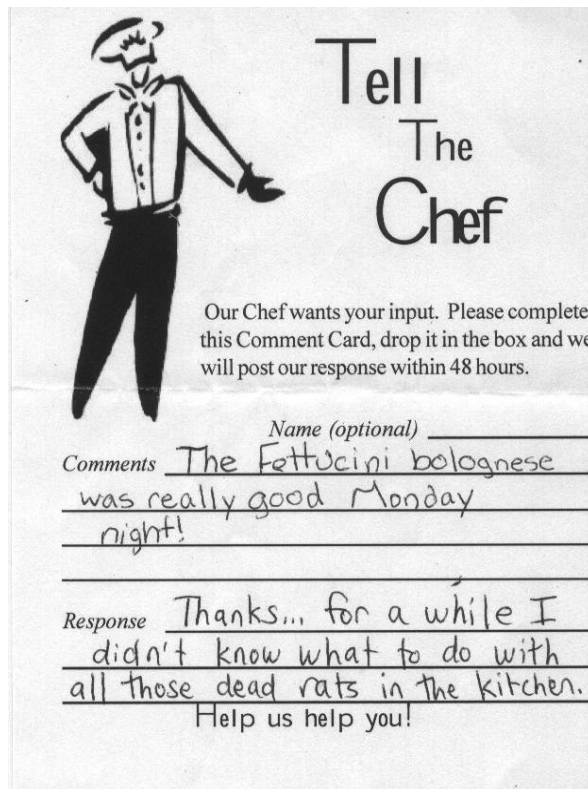 Tell
The
Chef
Our Chef wants your input. Please complete
this Comment Card, drop it in the box and we
will post our response within 48 hours.
Name (optional)
Comments The Fettucini bolognese
was really good Monday
night!
Response Thanks... for a while I
didn't know what to do with
all those dead rats in the kitchen.
Help us help you!